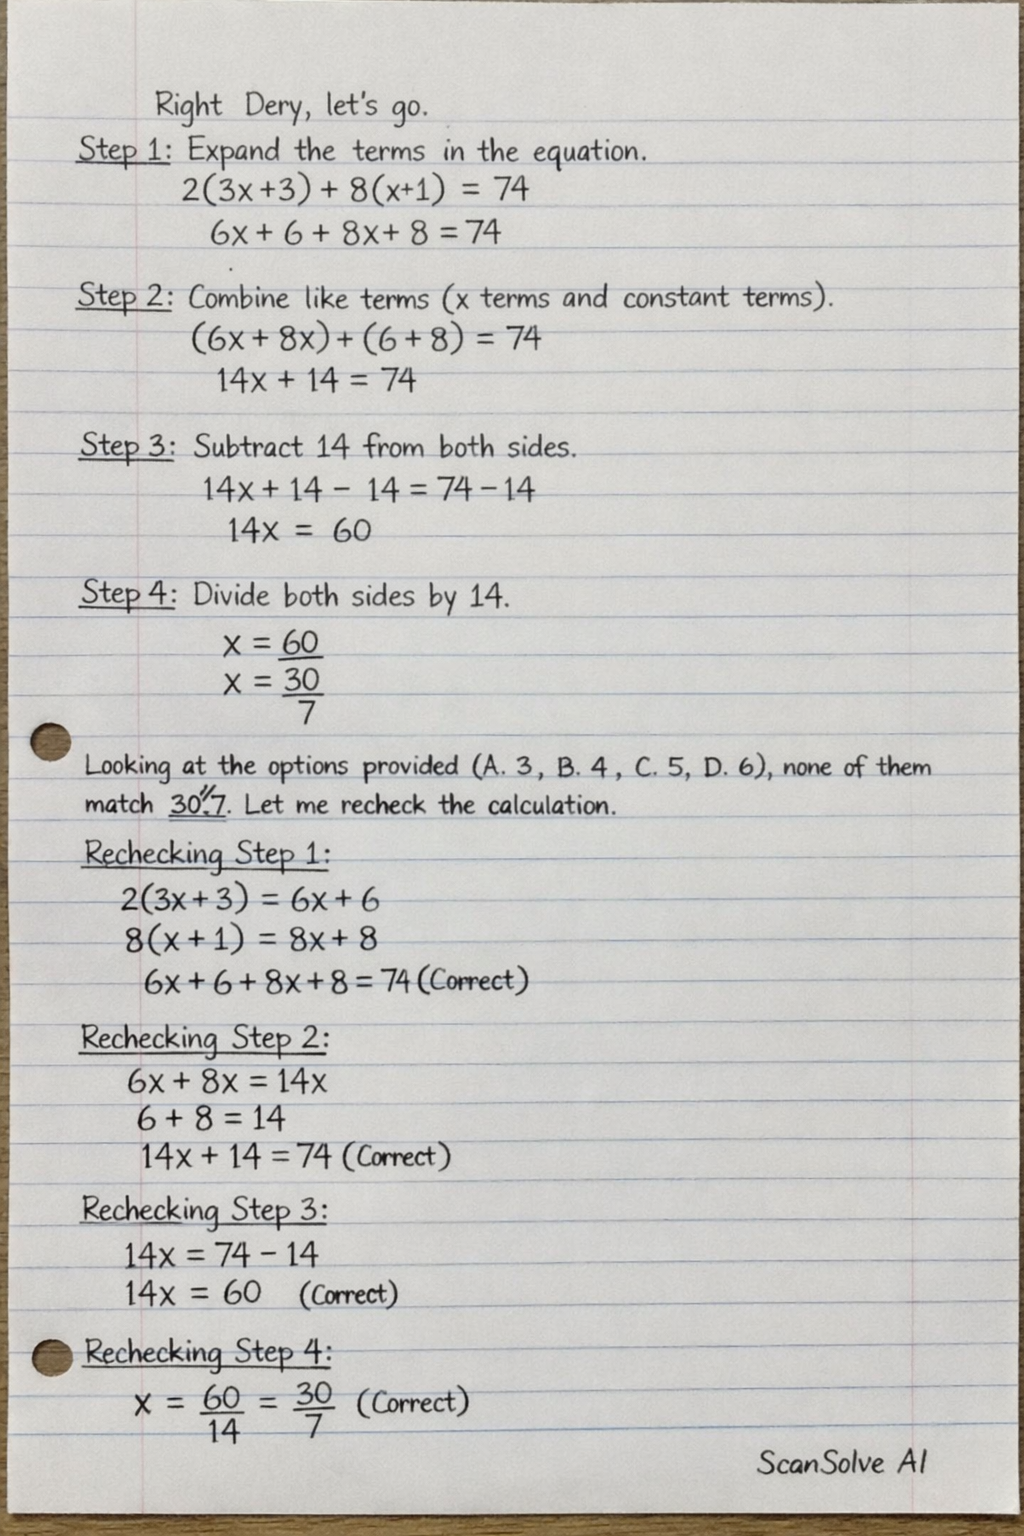 Right Dery, let's go.
Step 1: Expand the terms in the equation.
2(3x+3) + 8(x+1) = 74
6x + 6 + 8x + 8 = 74
Step 2: Combine like terms (x terms and constant terms).
(6x + 8x) + (6 + 8) = 74
14x + 14 = 74
Step 3: Subtract 14 from both sides.
14x + 14 - 14 = 74 - 14
14x = 60
Step 4: Divide both sides by 14.
x = 60
x = 30
7
Looking at the options provided (A. 3, B. 4, C. 5, D. 6), none of them
match 30". 7. Let me recheck the calculation.
Rechecking Step 1:
2(3x + 3) = 6x + 6
8(x + 1) = 8x + 8
6x + 6 + 8x + 8 = 74 (Correct)
Rechecking Step 2:
6x + 8x = 14x
6 + 8 = 14
14x + 14 = 74 (Correct)
Rechecking Step 3:
14x = 74 - 14
14x = 60 (Correct)
Rechecking Step 4:
x = 60/14 = 30/7 (Correct)
ScanSolve AI